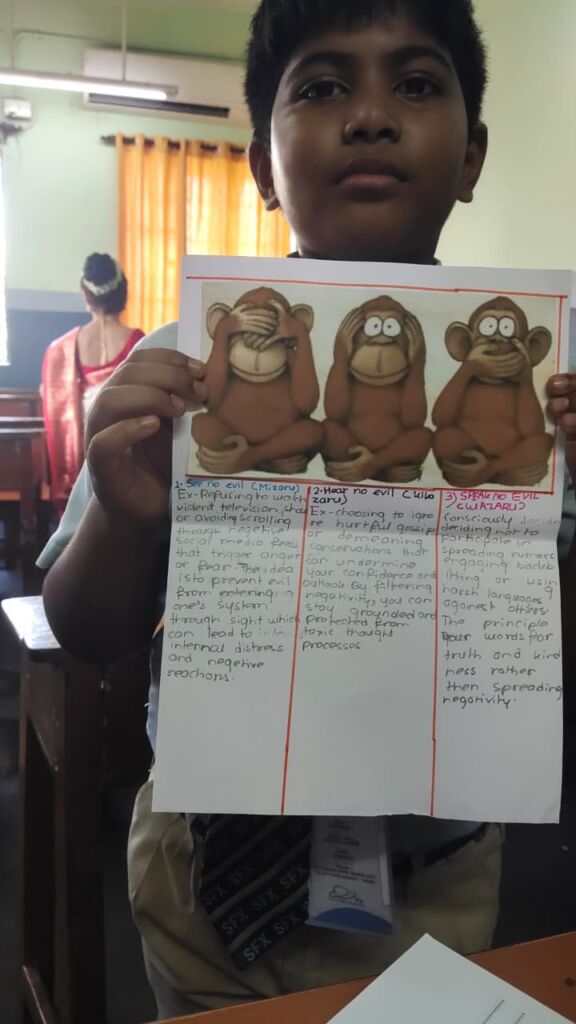 1. See no evil (Mizaru)
Ex- Refusing to watch
violent television, shows
or avoiding scrolling
through
social media feeds
that trigger anger
or fear. The idea
is to prevent evil
from entering
one's system
through sight which
can lead to
internal distress
and negetive
reactions.
2- Hear no evil (kika
zaru)
Ex- choosing to igno
re hurtful gossip
or demeaning
conservations that
can undermine
your confidence and
outlook By filtering
negativity, you can
stay grounded and
protected from
toxic thought
processes
3) SPEAK NO EVIL
(WAZARU)
Consciously
deciding not to
participate in
spreading rumers
engaging backb
iting or using
harsh languages
against others.
The principle
your words for
truth and kind
ness rather
then spreading
negativity.
SFX
SFX
SFX